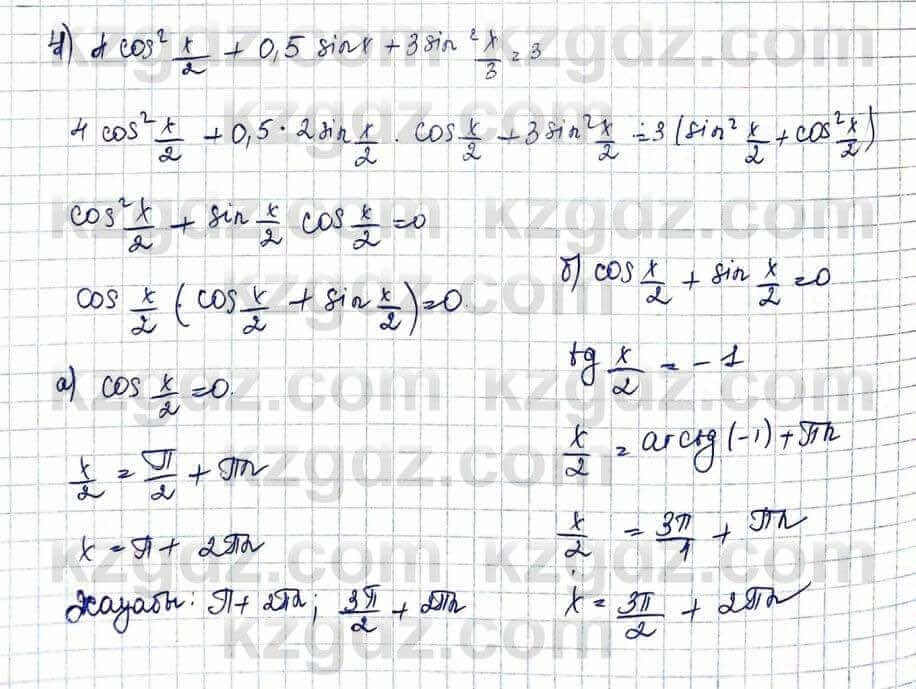 4) 4 cos² x/2 + 0,5 sin x + 3 sin² x/3 = 3
4 cos² x/2 + 0,5 · 2 sin x/2 · cos x/2 + 3 sin² x/2 = 3 (sin² x/2 + cos² x/2)
cos² x/2 + sin x/2 cos x/2 = 0
cos x/2 (cos x/2 + sin x/2) = 0.
а) cos x/2 = 0.
x/2 = π/2 + πn
x = π + 2πn
Жауабы: π + 2πn; 3π/2 + 2πn
б) cos x/2 + sin x/2 = 0
tg x/2 = -1
x/2 = arctg (-1) + πn
x/2 = 3π/1 + πn
x = 3π/2 + 2πn
kzgdz.com